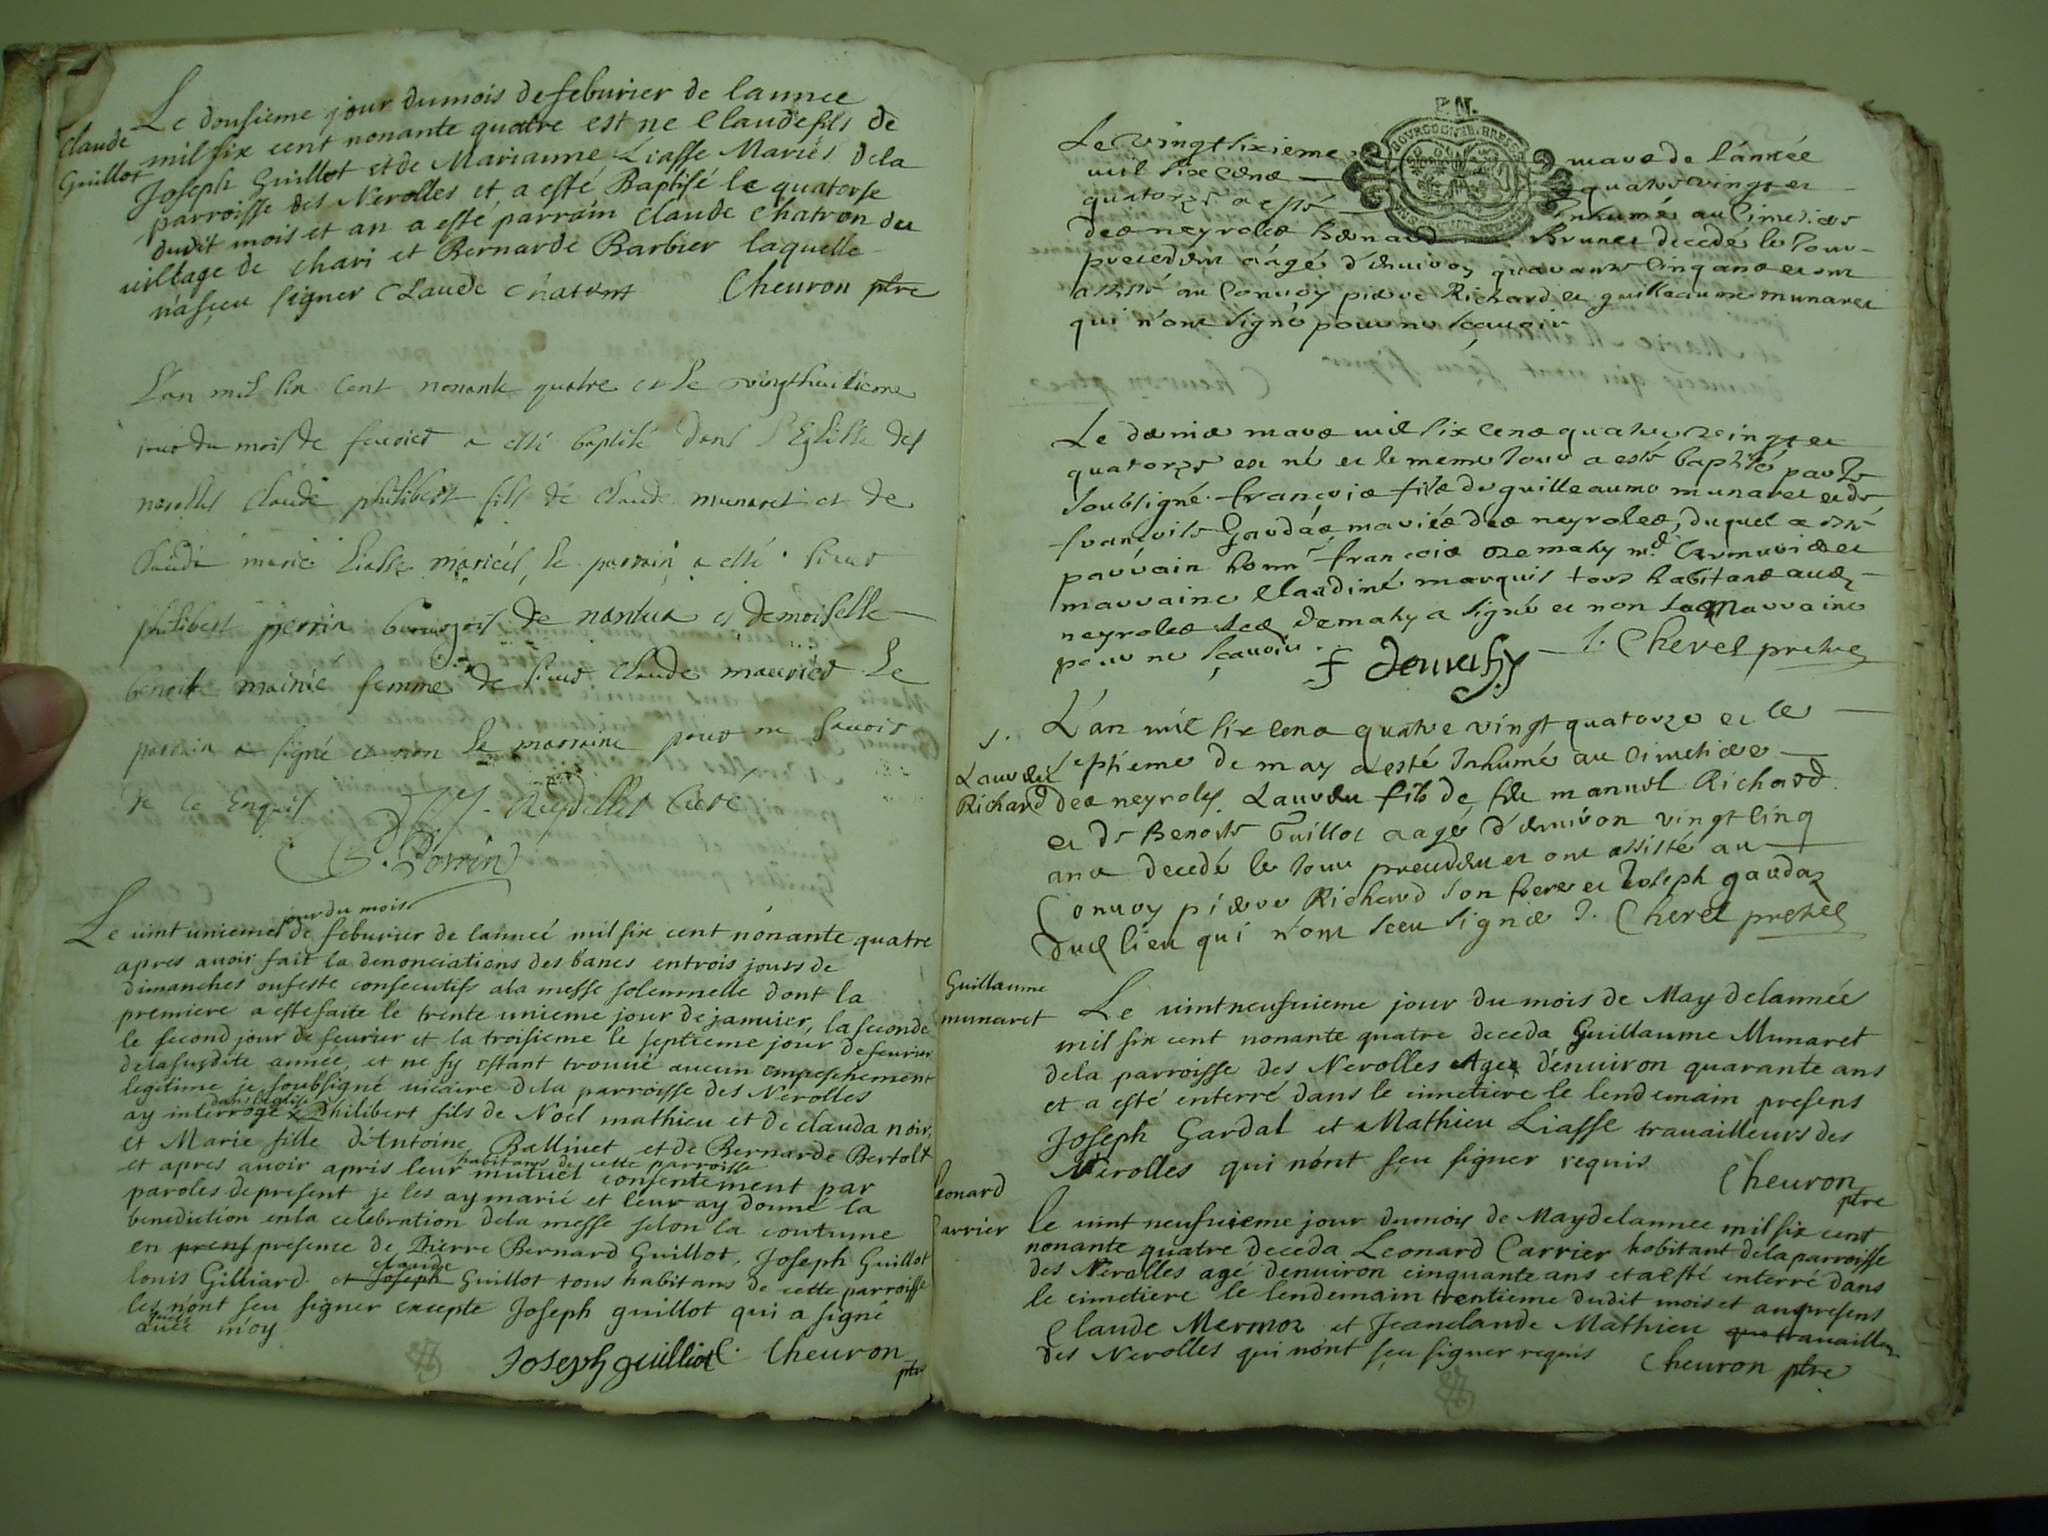 Le dousieme jour du mois de feburier de lannee
Claude
mil six cent nonante quatre est ne Claude fils de
Guillot
Joseph Guillot et de Marianne Liasse Mariés dela
parroisse des Nerolles et a esté Baptisé le quatorse
dudit mois et an a esté parrain Claude Chatron du
uillage de Chari et Bernarde Barbier laquelle
na sçeu signer Claude Chatront Cheuron ptre
L'an mil six cent nonante quatre et le vingthuitieme
jour du mois de feuvier a esté baptisé dans l'Eglise des
nerolles Claude philibert fils de Claude munaret et de
Claude marie Liasse mariés, le parrain a esté sieur
philibert perrin bourgois de nantua et demoiselle
benoite mainié femme de sieur Claude maurier Le
parrain a signé et non la marraine pour ne sauoir
de ce Enquis Reydellet Curé
P. Perrin
jour du mois
Le uint unieme de feburier de lanneé mil six cent nónante quatre
apres auoir fait la denonciations des bancs entrois jours de
dimanches ou feste consecutifs ala messe solemnelle dont la
premiere a esté faite le trente unieme jour de januier, la seconde
le second jour de feurier et la troisieme le septieme jour de feurier
de la susdite année, et ne sy estant trouué aucun empeschement
legitime je soubsigné uicaire dela parroisse des Nerolles
dans leglise
ay interrogé Philibert fils de Noel mathieu et de clauda noir,
et Marie fille d'Antoine Ballivet et de Bernarde Bertolt
habitans de cette parroisse
et apres auoir apris leur mutuel consentement par
paroles de present je les ay marié et leur ay donné la
benediction enla celebration dela messe selon la coutume
en prens presence de Pierre Bernard Guillot, Joseph Guillot
claude
louis Gilliard et Joseph Guillot tous habitans de cette parroisse
les n'ont seu signer excepte Joseph guillot qui a signé
auec m'oy
Joseph guilliot Cheuron
ptre
P.N.
BOURGOGNE BRESSE
Le Vingtsixieme mars de l'année
mil six cens quatre vingt et
quatorze a esté Inhumé au Cimetiere
des neyroles bernard Brunet decedé le Jour
precedent aagé d'enuiron quarante cinq ans et ont
assisté au Convoy pierre Richard et guilleaume munaret
qui n'ont signé pour ne sçauoir
Le dernier mars mil six cens quatre vingt et
quatorze est né et le meme Jour a esté baptisé par le
soubsigné françois fils de guilleaume munaret et de
françoise Gardaz mariés des neyroles, duquel a esté
parrain honn françois demahy md
marraine Claudine marquis tous habitans aud
neyroles led demahy a signé et non la marraine
pour ne sçauoir. f demahy J. Cheuel pretre
L'an mil six cens quatre vingt quatorze et le
Laurent
septieme de may a esté Inhumé au Cimetiere
Richard
des neyroles Laurent fils de feu manuel Richard
et de Benoite Guillot aagé d'enuiron vingt cinq
ans decedé le Jour precedent et ont assisté au
Convoy pierre Richard son frere et Joseph gardaz
dud lieu qui n'ont sceu signer J. Cheuel pretre
Guillaume
munaret
Le uintneufuieme jour du mois de May de lannée
mil six cent nonante quatre deceda Guillaume Munaret
dela parroisse des Nerolles Agé d'enuiron quarante ans
et a esté enterré dans le cimetiere le lendemain presens
Joseph Gardal et Mathieu Liasse trauailleurs des
Nerolles qui n'ont sçu signer requis Cheuron
ptre
Leonard
Carrier
Le uint neufuieme jour dumois de May de lannee mil six cent
nonante quatre deceda Leonard Carrier habitant dela parroisse
des Nerolles agé d'enuiron cinquante ans et a esté enterré dans
le cimetiere le lendemain trentieme dudit mois et an presens
Claude Mermoz et Jeanclaude Mathieu que trauailleu
des Nerolles qui n'ont sçu signer requis Cheuron ptre